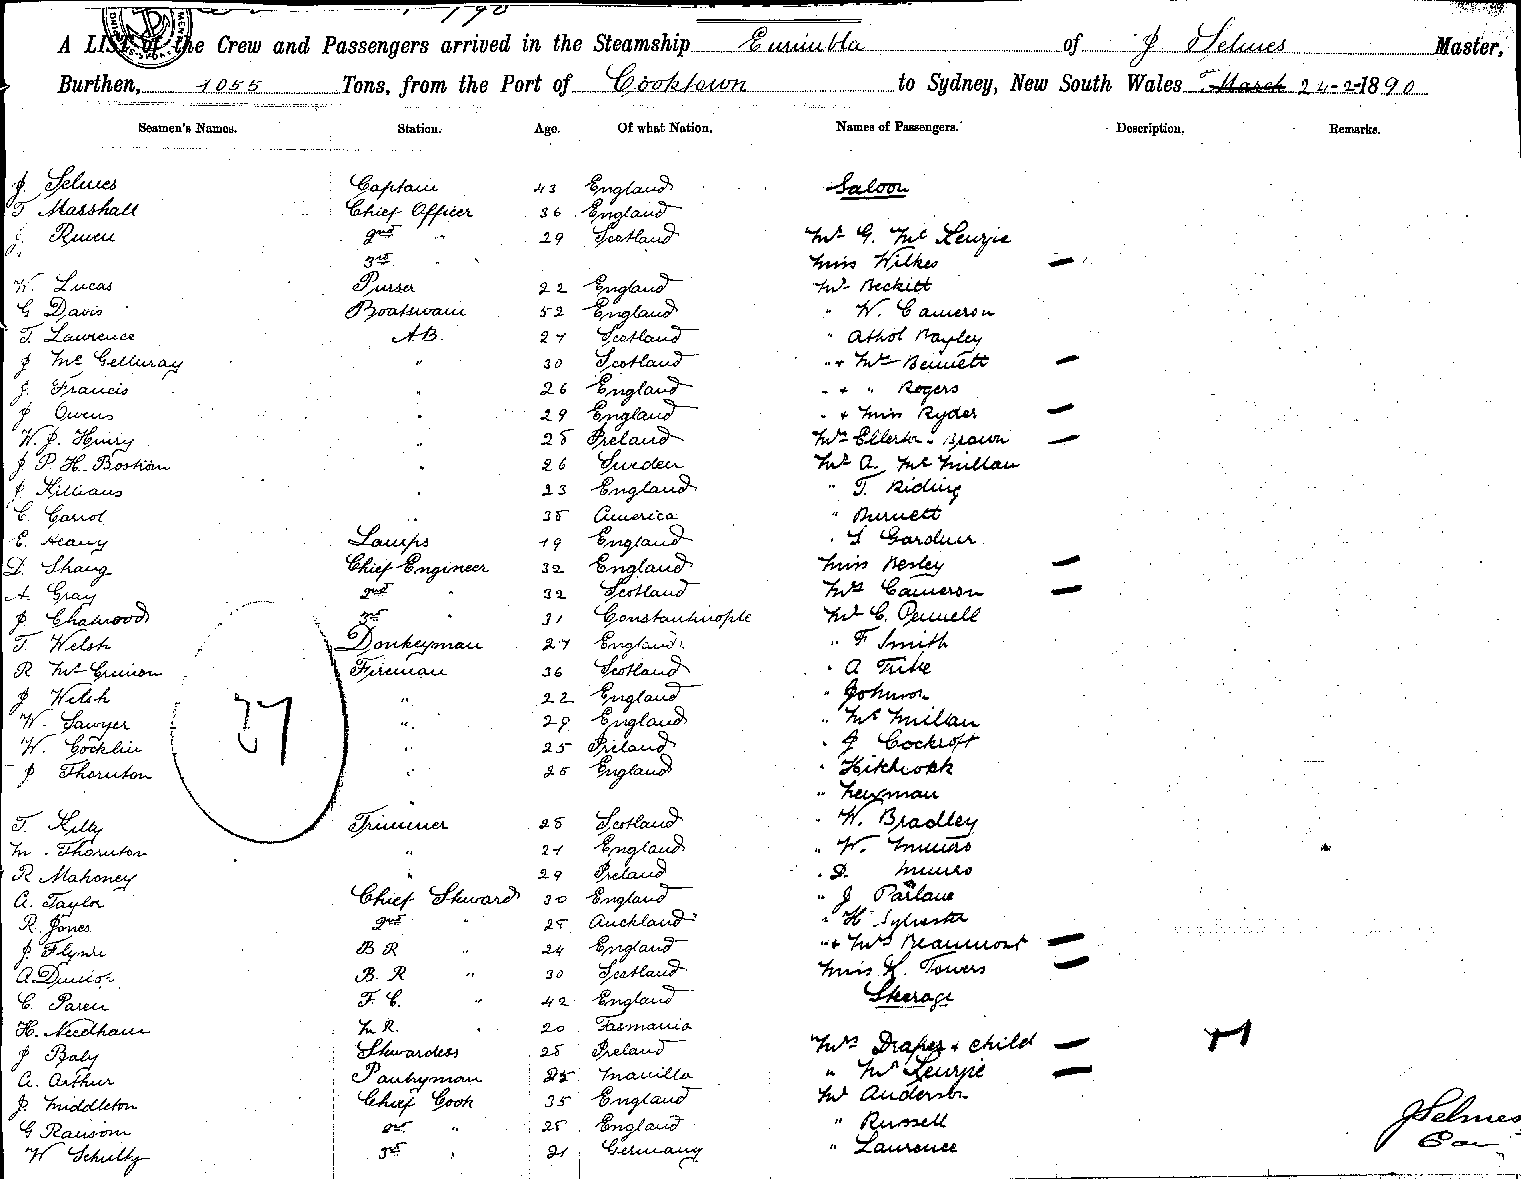 190
A LIST of the Crew and Passengers arrived in the Steamship Eurimbla of J Selmes Master,
Burthen, 1055 Tons, from the Port of Cooktown to Sydney, New South Wales March 24-2-1890
Seamen's Names. Station. Age. Of what Nation. Names of Passengers. Description. Remarks.
J. Selmes Captain 43 England Saloon
T Marshall Chief Officer 36 England
J. 2nd " 29 Scotland Mr G. Mc Kenzie
3rd " Miss Wilkes —
W. Lucas Purser 22 England Mr Beckitt
G Davis Boatswain 52 England " W. Cameron
T. Lawrence A.B. 27 Scotland " Athol Bayley
J Mc Gelluray " 30 Scotland " + Mrs Bennett —
J. Francis " 26 England " + " Rogers
J Owens " 29 England " + Miss Ryder —
W. J. Henry " 28 Ireland Mrs Ellerton Brown —
J P. H. Bostian " 26 Sweden Mr A. Mc Millan
J Killians " 23 England " T. Riding
C. Carrol " 38 America " Burnett
E. Heany Lamps 19 England " Gardner
D. Shang Chief Engineer 32 England Miss Besley —
A Gray 2nd " 32 Scotland Mrs Cameron —
J. Charwood 3rd " 31 Constantinople Mr C. Pennell
T. Welsh Donkeyman 27 England " F Smith
R Mc Crimon Fireman 36 Scotland " A Tribe
J Welsh " 22 England " Johnson
W. Sawyer " 29 England " Mc Millan
37
W. Cocklin " 25 Ireland " J Cockroft
J Thornton " 25 England " Hitchcock
" " Heyman
T. Kelly Trimmer 28 Scotland " W. Bradley
M. Thornton " 21 England " W. Munro
R Mahoney " 29 Ireland " D. Munro
A. Taylor Chief Steward 30 England " J Parlane
R. Jones 2nd " 28 Auckland " H Sylvester
J. Flynn B R " 24 England " + Mrs Beaumont —
A B. R " 30 Scotland Miss K. Towers —
C. Paren F. C. " 42 England Steerage
H. Needham M R. " 20 Tasmania
J Baly Stewardess 28 Ireland Mrs Draper + child —
A. Arthur Pantryman 25 Manilla " Mc Kenzie —
J. Middleton Chief Cook 35 England Mr Anderson
G Ransom 2nd " 28 England " Russell
W Schultz 3rd " 21 Germany " Laurence
J Selmes